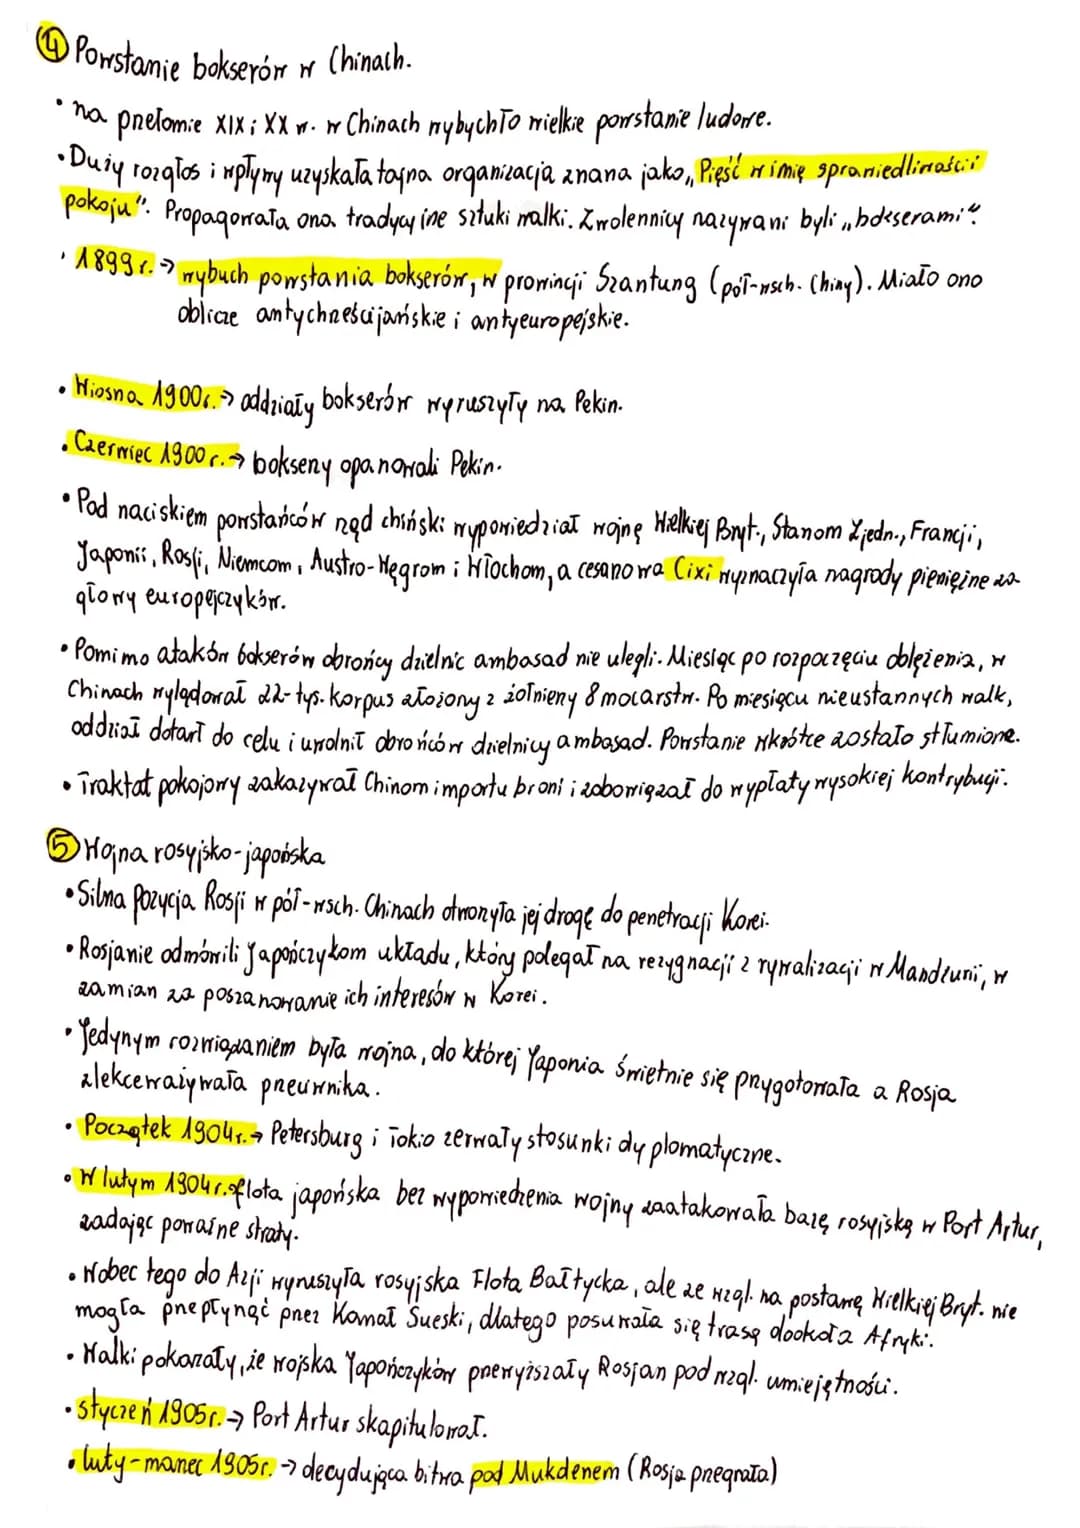 4 Powstanie bokserów w Chinach.
• na przełomie XIX i XX w. w Chinach wybuchło wielkie powstanie ludowe.
• Duży rozgłos i wpływy uzyskała tajna organizacja znana jako „Pięść w imię sprawiedliwości i
pokoju". Propagowała ona tradycyjne sztuki walki. Zwolennicy nazywani byli „bokserami".
• 1899 r. → wybuch powstania bokserów, w prowincji Szantung (półł-wsch. Chiny). Miało ono
oblicze antychrześcijańskie i antyeuropejskie.
• Wiosna 1900r. → oddziały bokserów wyruszyły na Pekin.
• Czerwiec 1900 r. → bokserzy opanowali Pekin.
• Pod naciskiem powstańców rząd chiński wypowiedział wojnę Wielkiej Bryt., Stanom Zjedn., Francji,
Japonii, Rosji, Niemcom, Austro-Węgrom i Włochom, a cesarzowa Cixi wyznaczyła nagrody pieniężne za
głowy europejczyków.
• Pomimo ataków bokserów obrońcy dzielnic ambasad nie ulegli. Miesiąc po rozpoczęciu oblężenia, w
Chinach wylądował 22-tys. korpus złożony z żołnierzy 8 mocarstw. Po miesiącu nieustannych walk,
oddział dotarł do celu i uwolnił obrońców dzielnicy ambasad. Powstanie wkrótce zostało stłumione.
• Traktat pokojowy zakazywał Chinom importu broni i zobowiązał do wypłaty wysokiej kontrybucji.
5 Wojna rosyjsko-japońska
• Silna Pozycja Rosji w pół-wsch. Chinach otworzyła jej drogę do penetracji Korei.
• Rosjanie odmówili Japończykom układu, który polegał na rezygnacji z rywalizacji w Mandżurii, w
zamian za poszanowanie ich interesów w Korei.
• Jedynym rozwiązaniem była wojna, do której Japonia świetnie się przygotowała a Rosja
zlekceważywała przeciwnika.
• Początek 1904r. → Petersburg i Tokio zerwały stosunki dyplomatyczne.
• W lutym 1904r. flota japońska bez wypowiedzenia wojny zaatakowała bazę rosyjską w Port Artur,
zadając poważne straty.
• Wobec tego do Azji wyruszyła rosyjska Flota Bałtycka, ale ze wzgl. na postawę Wielkiej Bryt. nie
mogła przepłynąć przez Kanał Sueski, dlatego posuwała się trasą dookoła Afryki.
• Walki pokazały, że wojska Japończyków przewyższały Rosjan pod wzgl. umiejętności.
• styczeń 1905r. → Port Artur skapitulował.
• luty-marzec 1905r. → decydująca bitwa pod Mukdenem (Rosja przegrała)